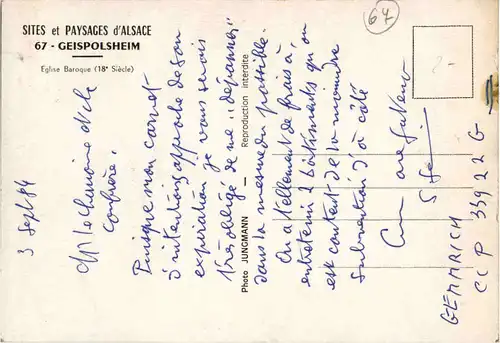 SITES et PAYSAGES d'ALSACE
67 - GEISPOLSHEIM
Eglise Baroque (18e Siècle)
67
3 Sept 84
M le chanoine et ch
confrère,
Puisque mon carnet
d'intentions approche de son
expiration je vous serais
très obligé de me "dépanner"
dans la mesure du possible.
On a tellement de frais à
entretenir 2 bâtiments qu'on
est content de la moindre
subvention d'à côté
GEMMRICH
CCP 33922 G
Photo JUNGMANN — Reproduction interdite